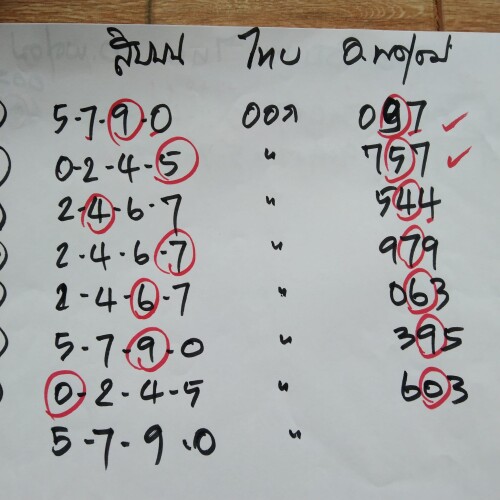 สิบบน ไทย
5-7-9-0 ออก 097 ✓
0-2-4-5 " 757 ✓
2-4-6-7 " 544
2-4-6-7 " 979
2-4-6-7 " 063
5-7-9-0 " 395
0-2-4-5 " 603
5-7-9.0 "